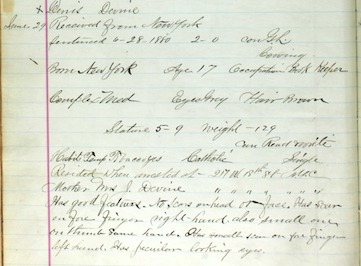 x Denis Devine
June 29 Received from New York
Sentenced 6-28-1880 2-0 Con
Cowing
Born New York Age 17 Occupation Book Keeper
Comple Med Eyes Grey Hair Brown
Stature 5-9 Weight -129
Can Read Write
Habits Temp Catholic Single
Resided when arrested at 18th St
Mother Mrs J. Devine " " " " " "
Has good features. No Scars on head or face. Has scar
on fore finger right hand. also small one
on thumb same hand. Has small scar on fore finger
left hand. Has peculiar looking eyes.